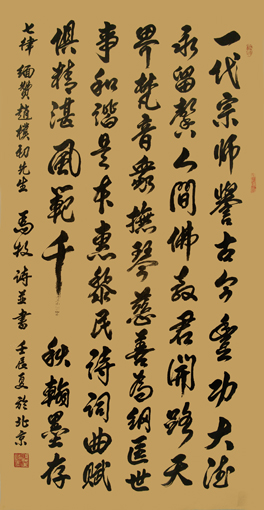 一代宗师誉古今丰功大德
永留馨人间佛教君开路天
界梵音众抚琴慈善为纲匡世
事和谐是本惠黎民诗词曲赋
俱精湛风范千
秋翰墨存
七律 缅赞赵朴初先生 马牧诗并书 壬辰夏於北京